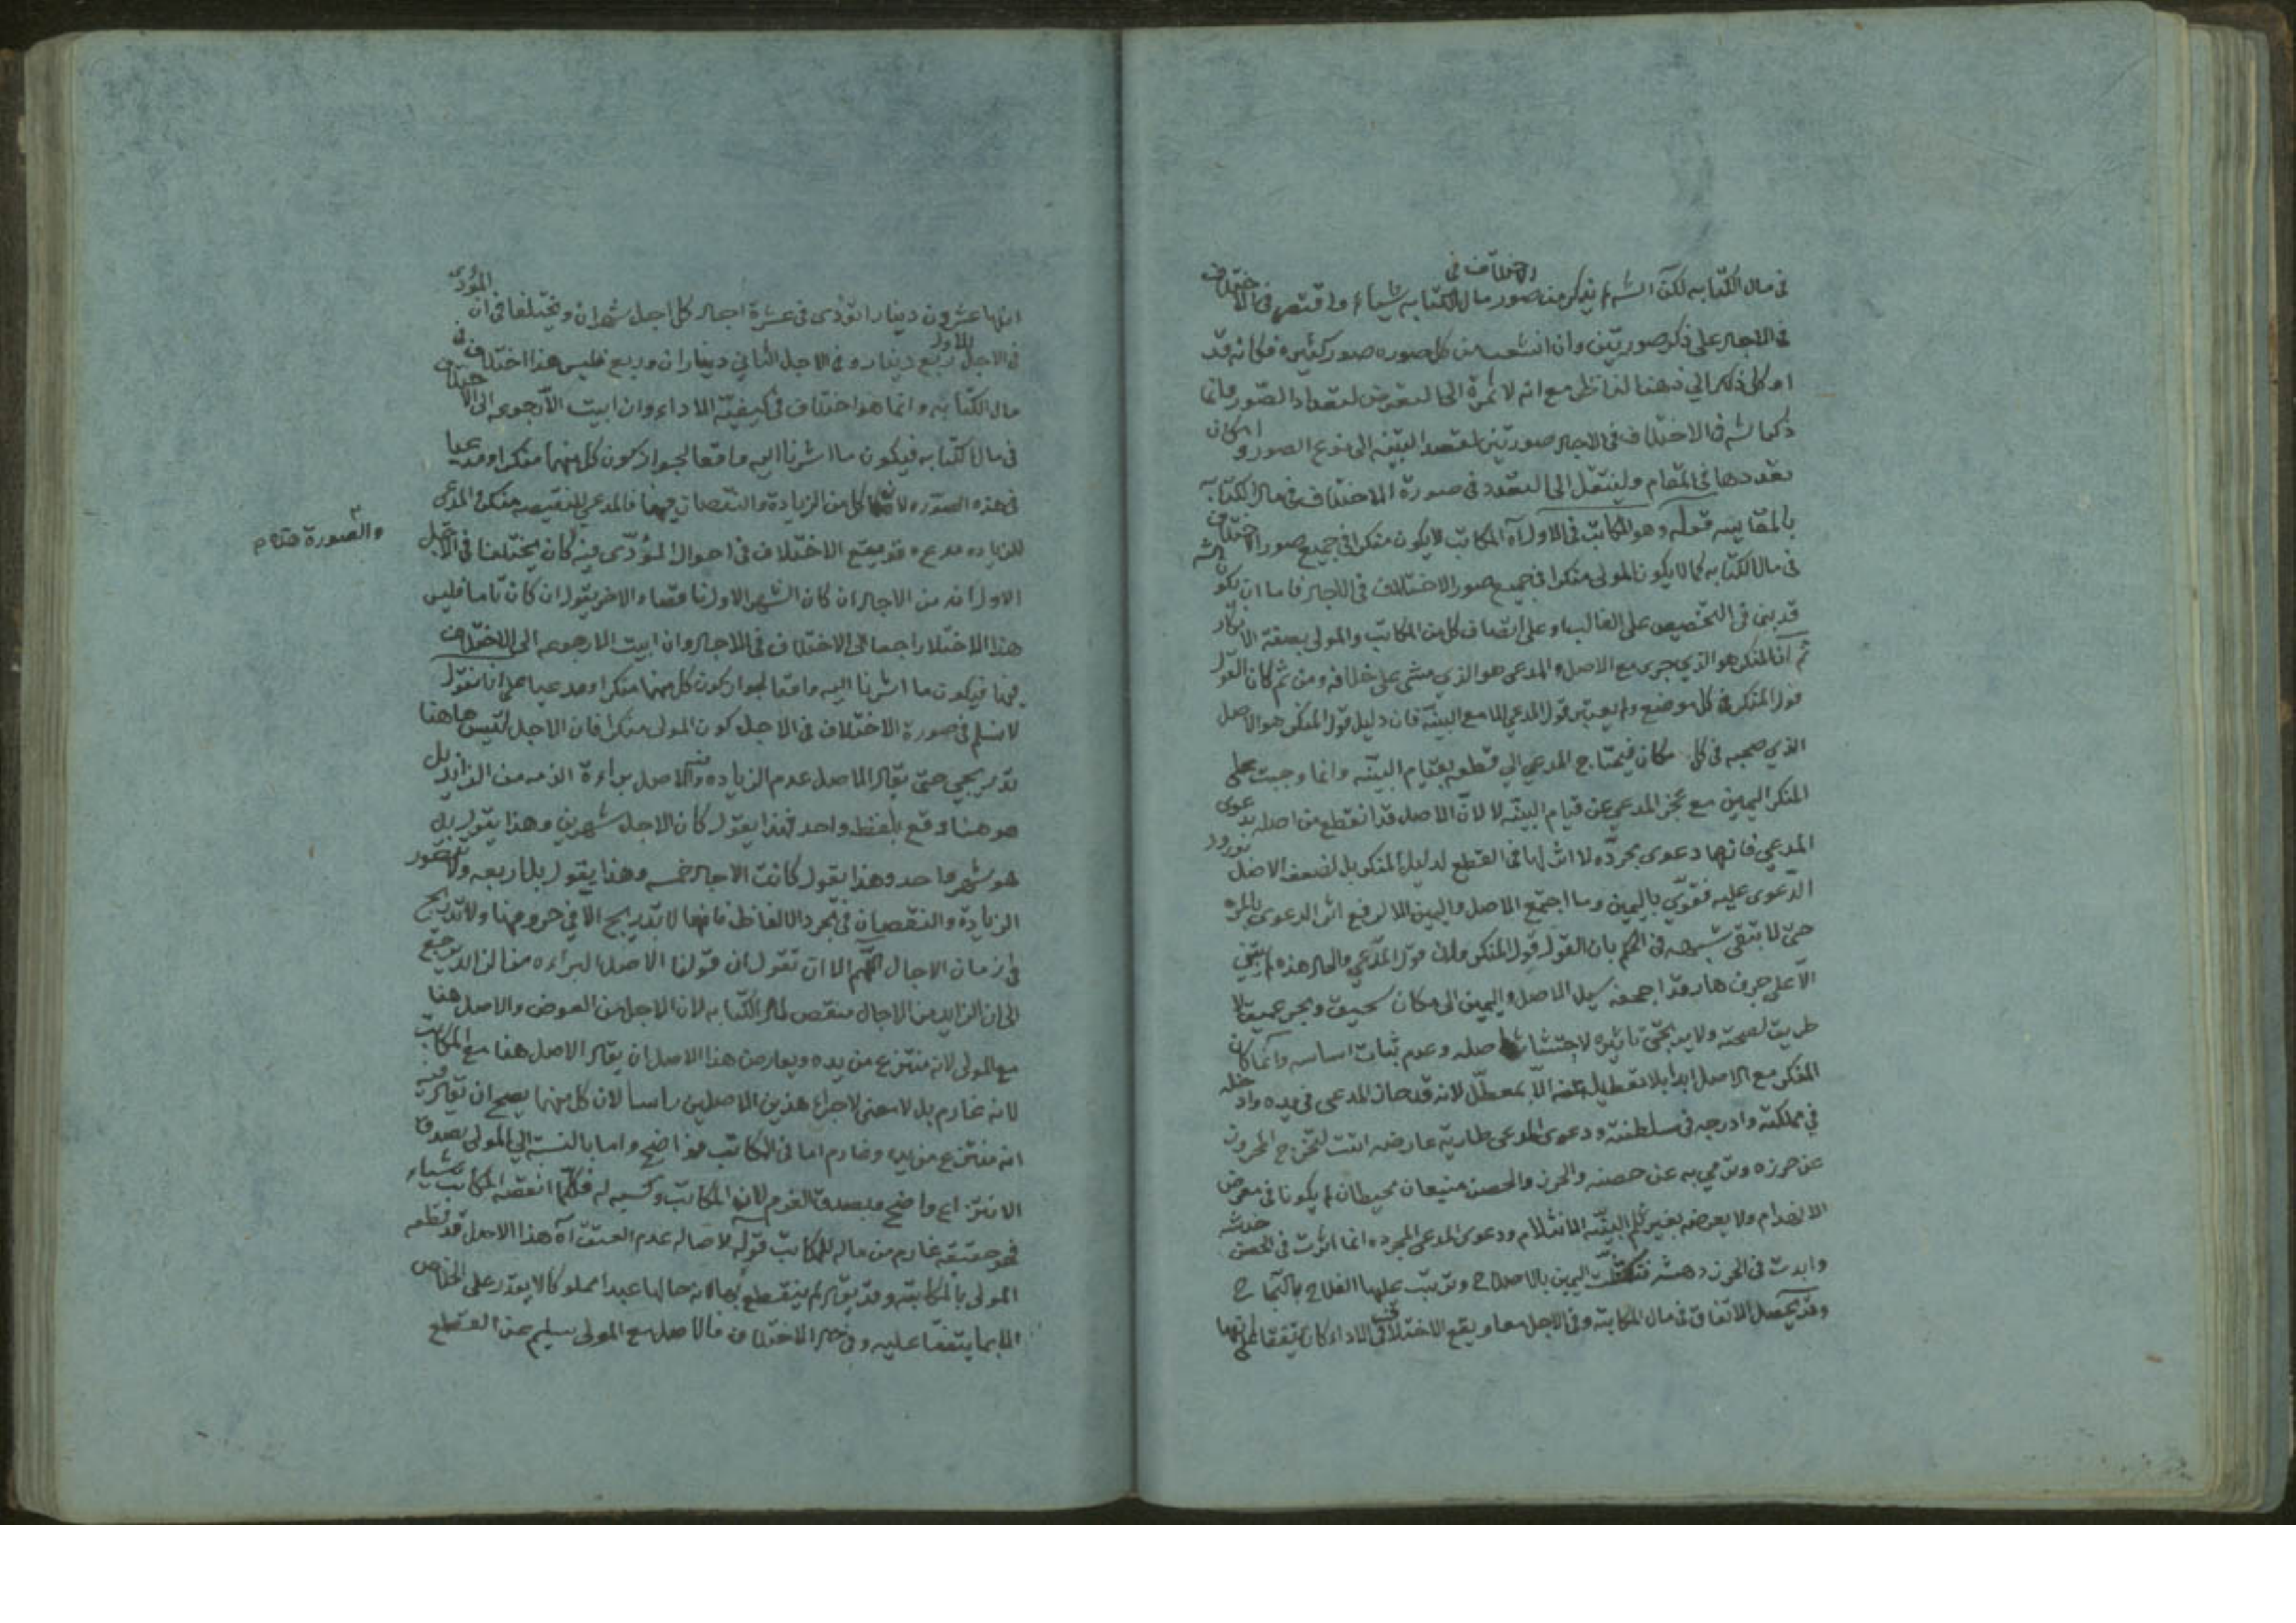 في مال الكتابه لكن الش لم يذكر من صور الاختلاف في مال الكتابه شياء واقتصر في الاختلاف
في الاجال على ذكر صورتين وان انشعب من كل صوره صور كثيره فكانه قد
اوكل ذلك الى ذهننا لناظر مع انه لا ثمرة الى التعرض لتعداد الصور وانما
ذكر الش في الاختلاف في الاجال صورتين لقصد التنبيه الى نوع الصور وامكان
تعددها في المقام ولينتقل الى التعدد في صورة الاختلاف في مال الكتابه
بالمقايسه قوله وهو المكاتب في الاول آه المكاتب لا يكون منكرا في جميع صور الاختلاف
في مال الكتابه كما لا يكون المولى منكرا في جميع صور الاختلاف في الاجال فاما ان يكون الش
قد بنى في التخصيص على الغالب او على اتصاف كل من المكاتب والمولى بصفة الانكار
ثم ان المنكر هو الذي جرى مع الاصل والمدعي هو الذي مشى على خلافه ومن ثم كان القول
قول المنكر في كل موضع ولم يعتبر قول المدعي الا مع البينة فان دليل قول المنكر هو الاصل
الذي صحبه في كل مكان فيحتاج المدعي الى قطعه بقيام البينه وانما وجبت على
المنكر اليمين مع عجز المدعي عن قيام البينه لا لان الاصل قد انقطع من اصله بدعوى
المدعي فانها دعوى مجرده لا اثر لها في القطع لدليل المنكر بل لضعف الاصل بورود
الدعوى عليه فقوي باليمين وما اجتمع الاصل واليمين الا لرفع اثر الدعوى بالمره
حتى لا تبقى شبهه في الحكم بان القول قول المنكر فان قول المدعي والحال هذه لم يبتني
الا على جرف هار قد اجحفه سيل الاصل واليمين الى مكان سحيق وبحر عميق لا
طريق لصحته ولا يرتجى تاثيره لاجتثاث اصله وعدم ثبات اساسه وانما كان
المنكر مع الاصل ابدا بلا تعطيل منه الا بمعطل لانه قد حاز المدعى في يده وادخله
في مملكته وادرجه في سلطنته ودعوى المدعي طارية عارضه اتت لتخرج المحروز
عن حرزه وترمي به عن حصنه والحرز والحصن منيعان محيطان لم يكونا في معرض
الانهدام ولا يعرضه بغير ثلم البينه الانثلام ودعوى المدعي المجرده انما اثرت في الحصن خدشه
وابدت في الحرز دهشه فتكفلت اليمين بالاصلاح وترتب عليها الفلاح بالنجاح
وقد يحصل الاتفاق في مال المكاتبه وفي الاجل معا ويقع الاختلاف في الاداء كان يتفقا على انها
انها عشرون دينارا تؤدى في عشرة اجال كل اجل شهران ويختلفا في ان المؤدى
في الاجل الاول ربع دينار وفي الاجل الثاني ديناران وربع فليس هذا اختلاف في
مال الكتابه وانما هو اختلاف في كيفية الاداء وان ابيت الا رجوعه الى الاختلاف
في مال الكتابه فيكون ما اشرنا اليه واقعا لجواز كون كل منهما منكرا ومدعيا
في هذه الصوره كل من الزيادة والنقصان فيها فالمدعي للنقيصه منكر والمدعي
للزياده مدع وقد يقع الاختلاف في احوال المؤدى فيه كان يختلفا في الاجل
والصورة هذه م
الاول انه من الاجال ان كان الشهر الاول ناقصا والاخر يقول ان كان تاما فليس
هذا الاختلاف راجعا الى الاختلاف في الاجال وان ابيت الا رجوعه الى الاختلاف
فيها فيكون ما اشرنا اليه واقعا لجواز كون كل منهما منكرا ومدعيا على انا نقول
لا نسلم في صورة الاختلاف في الاجل كون المولى منكرا فان الاجل ليس هاهنا
تدريجي حتى يقال الاصل عدم الزياده والاصل براءة الذمه من الزايد بل
هو هنا وقع بلفظ واحد فهذا يقول كان الاجل شهرين وهذا يقول بل
هو شهر واحد وهذا يقول كانت الاجال خمسه وهذا يقول بل اربعه ولا تتصور
الزيادة والنقصان في مجرد الالفاظ فانها لا تدريج الا في حروفها ولا تدريج
في ازمان الاجال اللهم الا ان تقول ان قولنا الاصل البراءه من الزايد يرجع
الى ان الزايد من الاجال منقص لمال الكتابه لان الاجل من العوض والاصل هنا
مع المولى لانه منتزع من يده ويعارض هذا الاصل ان يقال الاصل هنا مع المكاتب
لانه غارم بل لا معنى لاجراء هذين الاصلين راسا لان كل منهما يصح ان يقال فيه
انه منتزع من يده وغارم اما في المكاتب فواضح واما بالنسبة الى المولى فصدق
الانتزاع واضح ويصدق الغرم لان المكاتب وكسبه له فكلما انقصه المكاتب شياء
فهو حقيقه غارم من ماله للمكاتب قوله لاصاله عدم العتق آه هذا الاصل قد قطعه
المولى بالمكاتبه وقد يقال لم ينقطع بها لانه حالها عبدا مملوكا لا يقدر على الخلاص
الا بما يتفقا عليه وفي حال الاختلاف فالاصل مع المولى سليم عن القطع